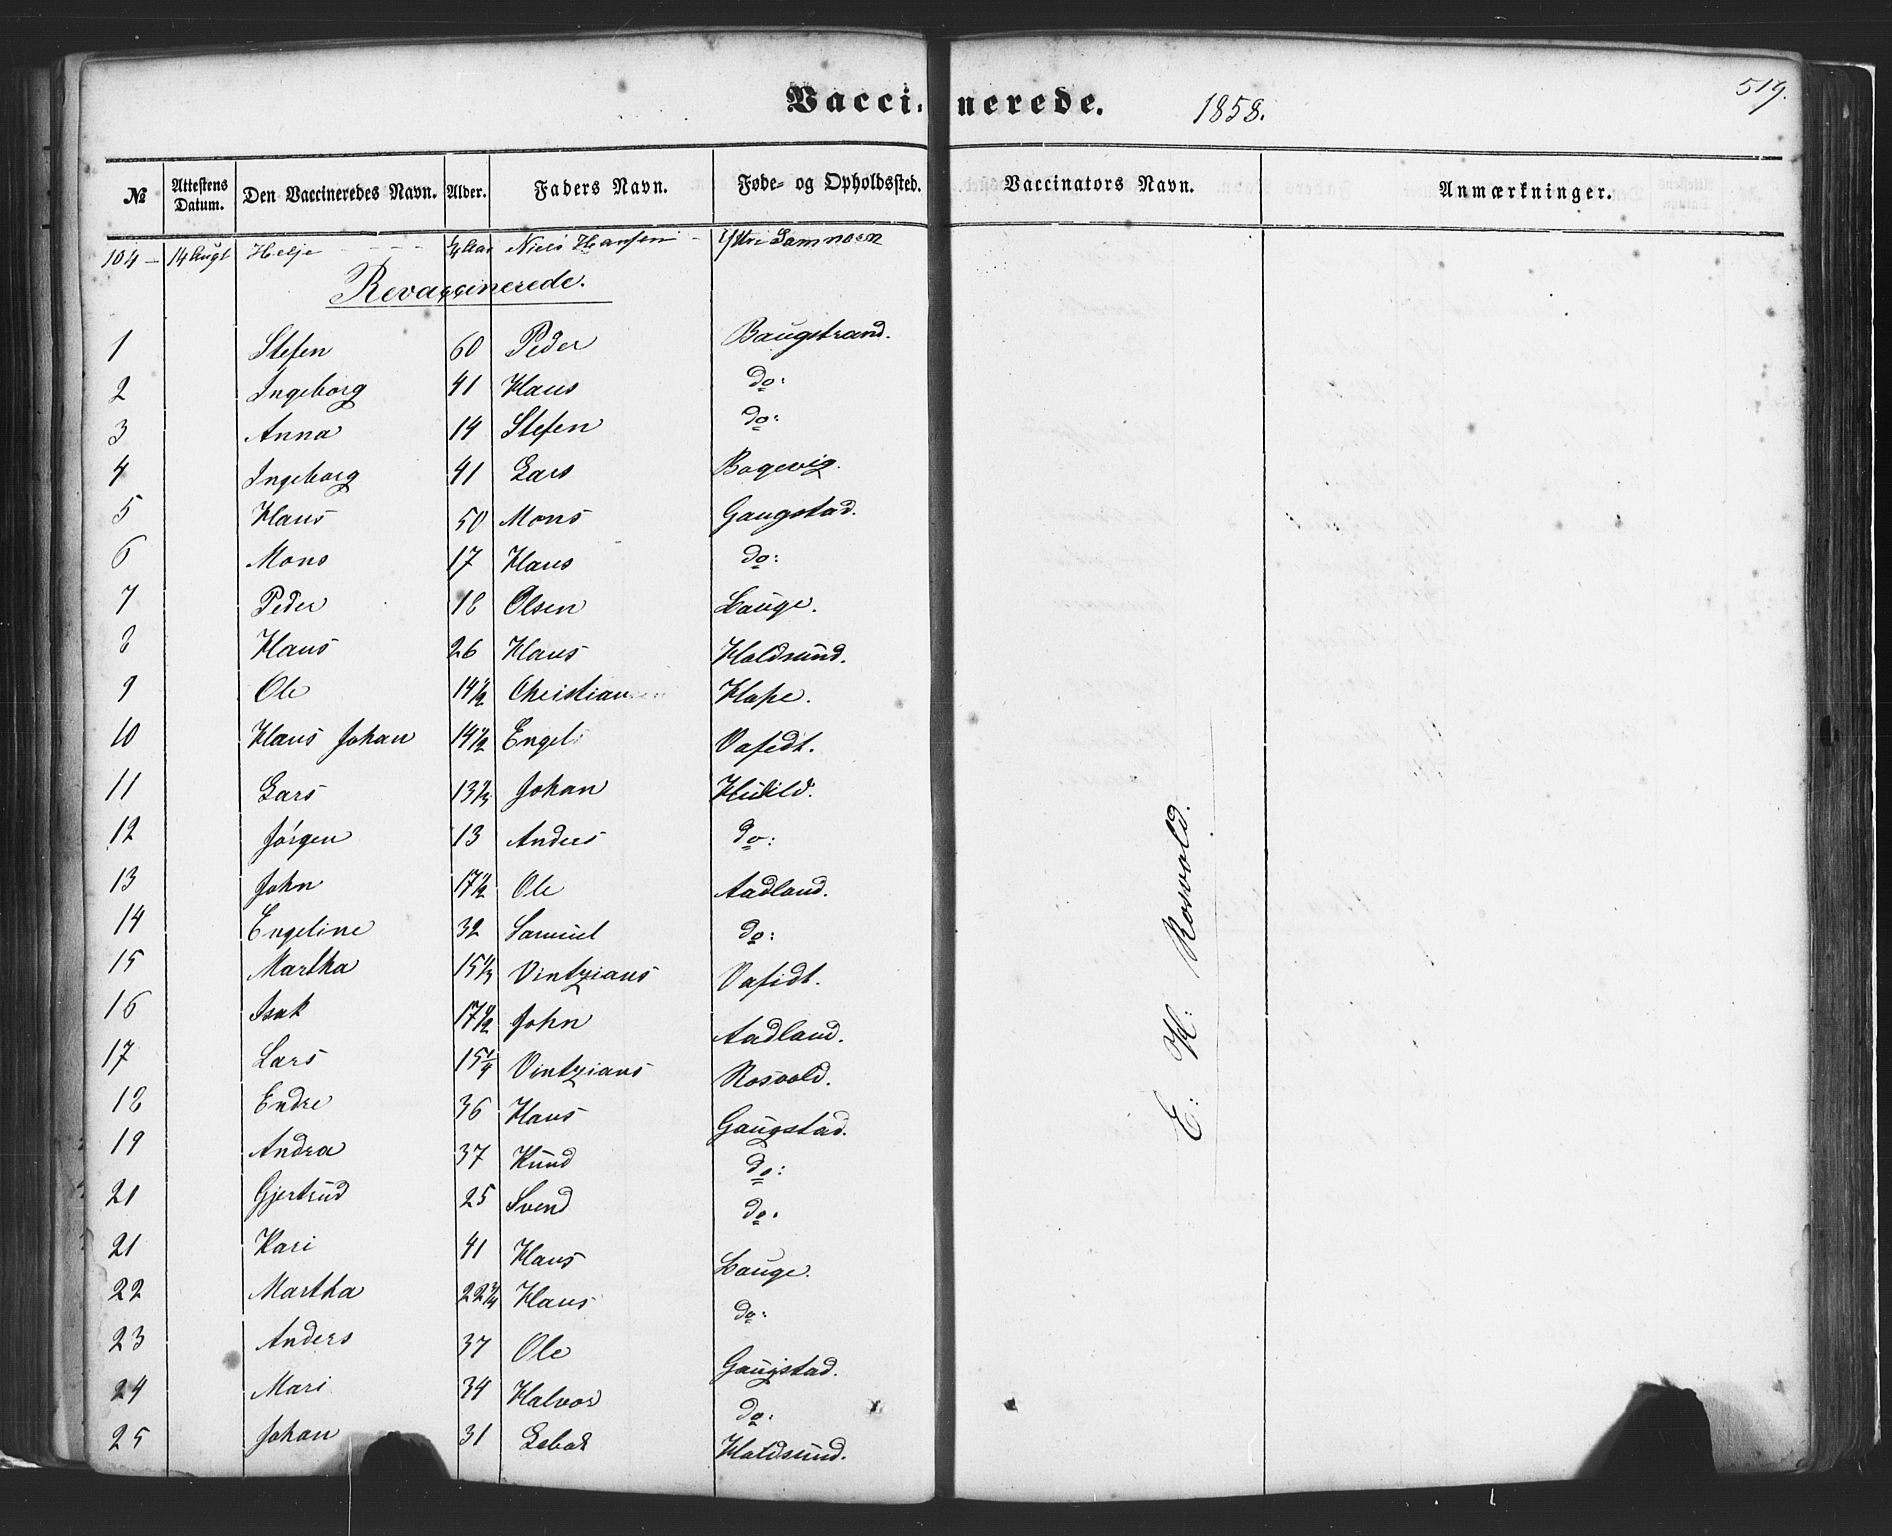 Vaccinerede. 1858. 519.
№ Attestens Datum. Den Vaccineredes Navn. Alder. Faders Navn. Føde- og Opholdssted. Vaccinators Navn. Anmærkninger.
104 – 14 Augt Helje - - - - Niels Hansen - Ytre
Revaccinerede.
1 Stefen 60 Peder Baugstrand.
2 Ingeborg 41 Hans do:
3 Anna 14 Stefen do:
4 Ingeborg 41 Lars Bogevig.
5 Hans 50 Mons Gaugstad.
6 Mons 17 Hans do:
7 Peder 18 Olsen Lauge.
8 Hans 26 Hans Holdsund.
9 Ole 14 1/2 Christian Hope.
10 Hans Johan 14 1/2 Engel Vasedt.
11 Lars 13 1/3 Johan
12 Jørgen 13 Anders do:
13 John 17 1/2 Ole Aadland.
14 Engeline 32 Samuel do:
15 Martha 15 1/3 Vintzians Vasidt.
16 Isak 17 1/2 John Aadland.
17 Lars 15 1/4 Vintzians Rosvold.
18 Endre 36 Hans Gaugstad.
19 Andra 37 Knud do:
21 Gjertrud 25 Svend do.
21 Kari 41 Hans Lauge.
22 Martha 22 3/4 Hans do:
23 Anders 37 Ole Gaugstad.
24 Mari 34 Halvor do:
25 Johan 31 Holdsund.
E: H: Rosvold.